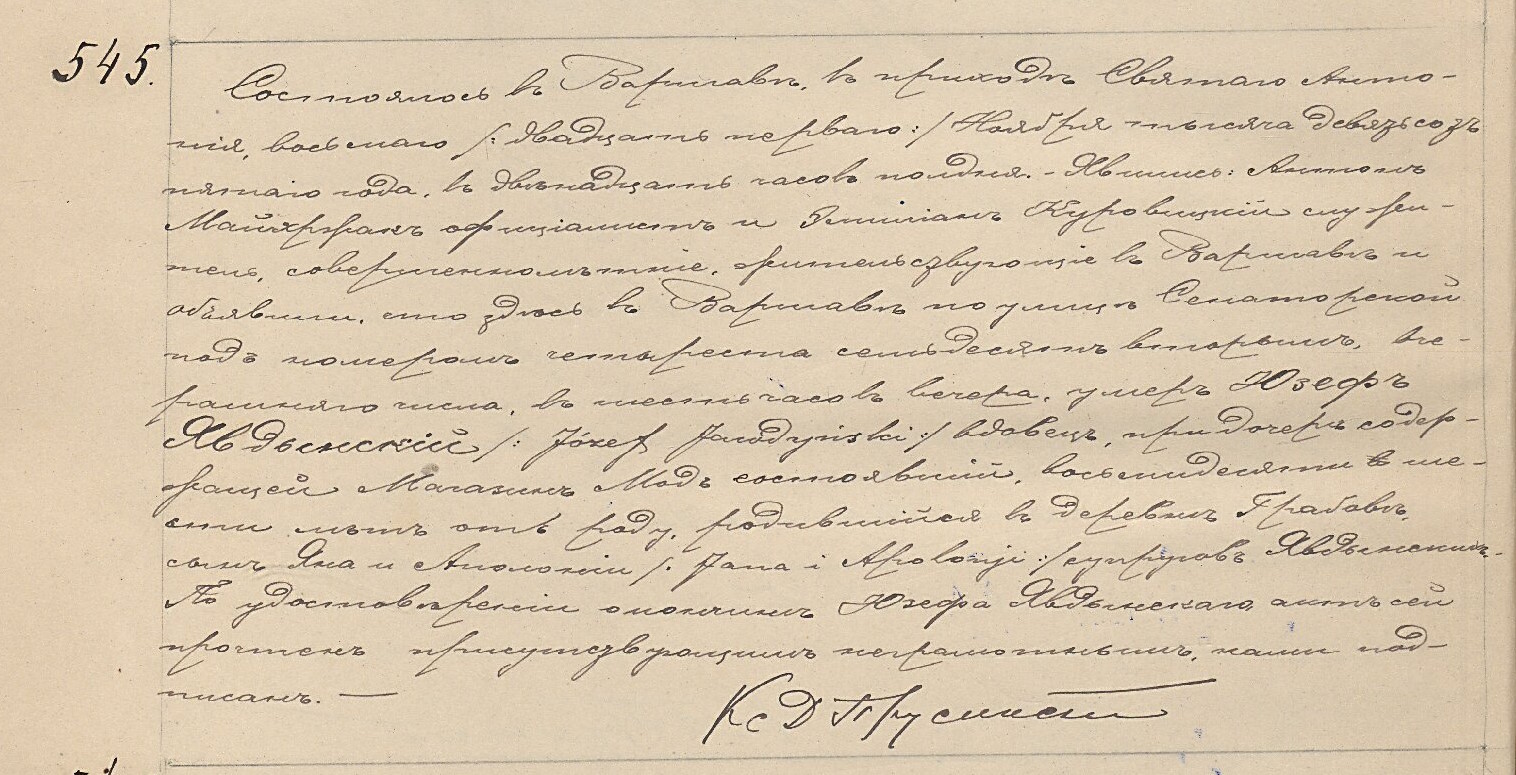 545.
Состоялось въ Варшавѣ, въ приходѣ Святаго Анто-
нія, восьмаго /: двадцать перваго :/ Ноября тысяча девятьсотъ
пятаго года, въ двѣнадцать часовъ полдня. - Явились: Антонъ
официалистъ и Эмиліанъ Куровицкій служи-
тель, совершеннолѣтніе, жительствующіе въ Варшавѣ и
объявили, что здѣсь въ Варшавѣ по улицѣ Сенаторской
подъ номеромъ четыреста семьдесятъ вторымъ, вче-
рашняго числа, въ шесть часовъ вечера, умеръ Юзефъ
Явдынскій /: Józef Jawdyński :/ вдовецъ, при дочери содер-
жащей Магазинъ Модъ состоявшій, восьмидесяти ше-
сти лѣтъ отъ роду, родившійся въ деревнѣ Грабовѣ,
сынъ Яна и Аполоніи /: Jana i Apolonji :/ супруговъ Явдынскихъ.-
По удостовѣреніи о кончинѣ Юзефа Явдынскаго, актъ сей
прочтенъ присутствующимъ неграмотнымъ, нами под-
писанъ. —
Кс Д